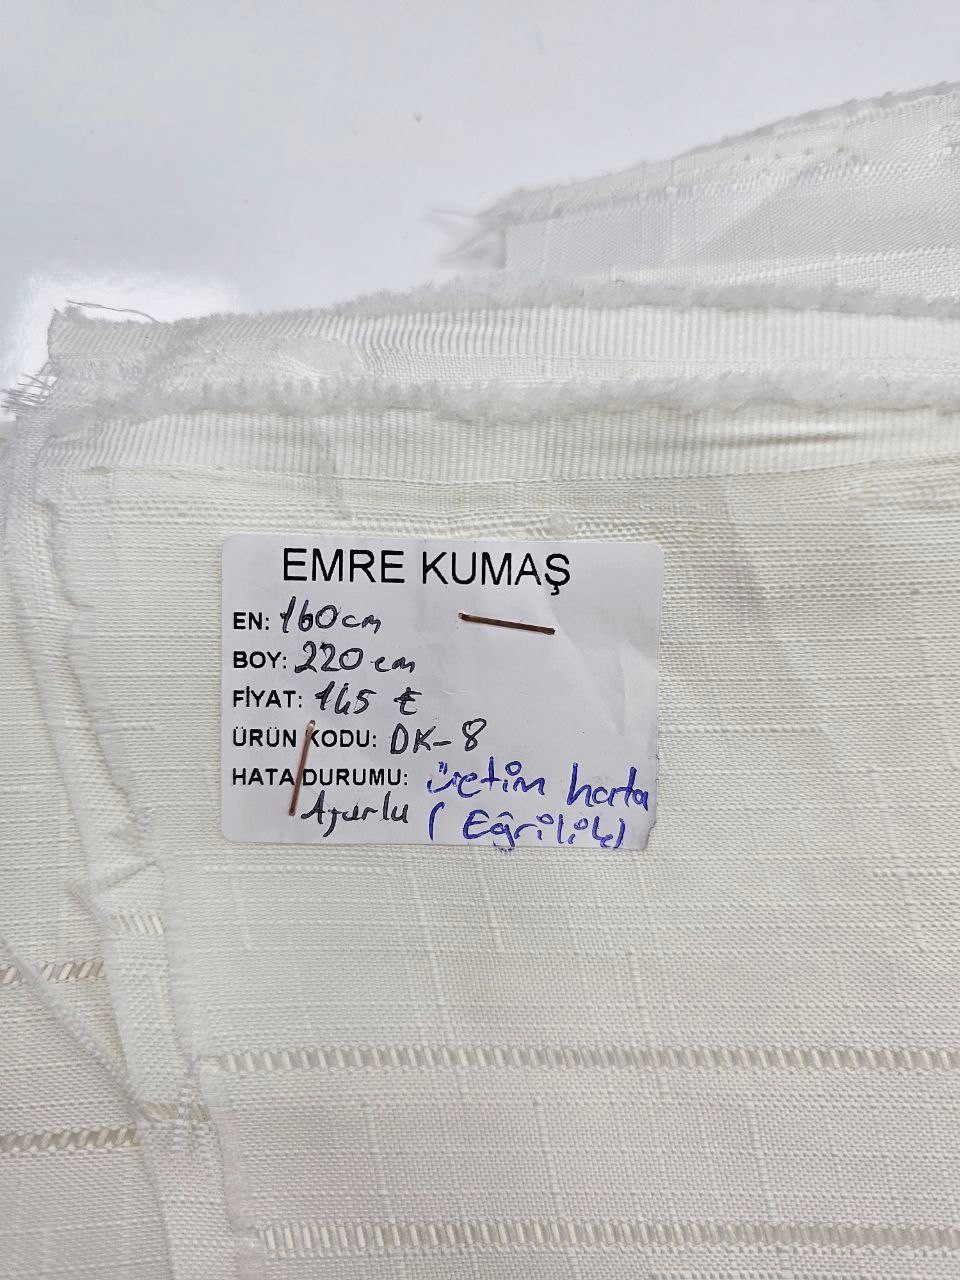 EMRE KUMAŞ
EN: 160 cm
BOY: 220 cm
FİYAT: 145 ₺
ÜRÜN KODU: DK-8
HATA DURUMU: üretim hata
Ajurlu (Eğrilik)